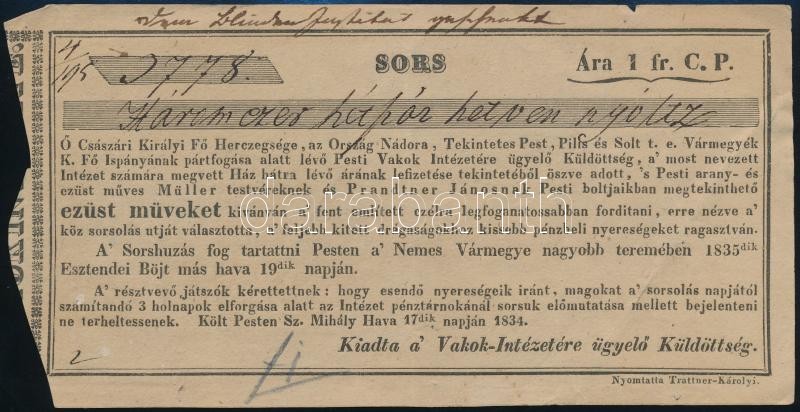 dem Blinden
4/195 3778.
SORS
Ára 1 fr. C. P.
Háromezer hétszáz hetven nyoltz
Ő Császári Királyi Fő Herczegsége, az Ország Nádora, Tekintetes Pest, Pilis és Solt t. e. Vármegyék
K. Fő Ispányának pártfogása alatt lévő Pesti Vakok Intézetére ügyelő Küldöttség, a' most nevezett
Intézet számára megvett Ház hátra lévő árának lefizetése tekintetéből öszve adott, 's Pesti arany- és
ezüst műves Müller testvéreknek és Prandtner Jánosnak Pesti boltjaikban megtekinthető
ezüst műveket kivánván a' fent említett czélra legfoganatossabban forditani, erre nézve a'
köz sorsolás utját választotta, a' feljebb kitett drágaságokhoz kissebb pénzbeli nyereségeket ragasztván.
A' Sorshuzás fog tartattni Pesten a' Nemes Vármegye nagyobb teremében 1835dik
Esztendei Böjt más hava 19dik napján.
A' résztvevő játszók kérettettnek: hogy esendő nyereségeik iránt, magokat a' sorsolás napjától
számítandó 3 holnapok elforgása alatt az Intézet pénztárnokánál sorsuk előmutatása mellett bejelenteni
ne terheltessenek. Költ Pesten Sz. Mihály Hava 17dik napján 1834.
Kiadta a' Vakok-Intézetére ügyelő Küldöttség.
2
Nyomtatta Trattner-Károlyi.
darabanth